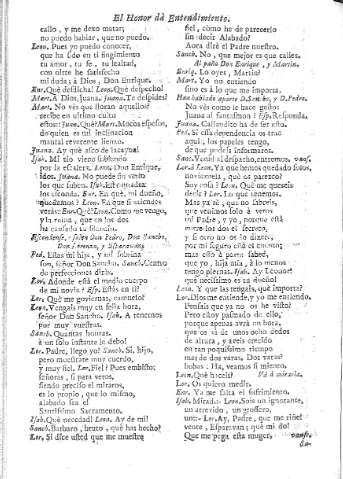 El Honor dà Entendimiento.
callo, y me dexo matar;
no puedo hablar, que no puedo.
Leon. Pues yo puedo conocer,
que ha sido en ti fingimiento
tu amor, tu fe, tu lealtad,
con otre he satisfecho
mi duda: à Dios, Don Enrique.
Enr. Què desdicha! Leon. Què despecho!
Mart. A Dios, Juana. Juana. Te despides?
Mart. No vès que lloran aquellos?
recibe en ultimo culto
estos: Juan. Què? Mart. Mocos espesos,
de quien es mi inclinacion
mental reverente lienzo.
Juana. Ay què asco de lacayna!
Isab. Mi tio viene subiendo
por la escalera. Leon. Don Enrique,
idos. Juana. No puede sin visto
los que suben.
los esconda. Enr. En què, mi dueño,
quedamos? Leon. En que si atiendes
veràs: Enr. Què? Leon. Como me vengo,
y la ruina, que en los dos
ha causado tu silencio.
Escondense, y salen Don Pedro, Don Sancho,
Ped. Estas mi hija, y mi sobrina
son, señor Don Sancho. Sanch. Cento
de perfecciones diréis.
Lor. Adonde està el medio cuerpo
de mi novia? Isab. Estàs en tì?
Lor. Què me goviernas, camuelo?
Leon. Vengais muy en feliz hora,
señor Don Sancho. Isab. A teneros
por muy vuestras.
Sanch. Quantas honras
à un solo instante le debo!
Lor. Padre, llego yo? Sanch. Sì, hijo,
pero muestrate muy cuerdo,
y muy fiel. Lor. Fiel? Pues embisto:
señoras, si para veros,
siendo preciso el miraros,
es lo propio, que lo mismo,
alabado sea el
Santissimo Sacramento.
Isab. Què necedad! Leona. Ay de mi!
Sanch. Barbaro, bruto, què has hecho?
Lor. Si dise usted que me muestre
fiel, como he de parecerlo
sin decir Alabado?
Aora dirè el Padre nuestro.
Sanch. No, que mejor es que calles.
Al paño Don Enrique, y Martin.
Enriq. Lo oyes, Martin?
Mart. Yo no entiendo
sino es à lo que me importa.
Han hablado aparte D. Sancho, y D. Pedro.
No vès como te hace gestos
Juana al santissimo? Isab. Responda.
Juana. Callandico ha de ser esto.
Ped. Si essa dependencia os trae
aqui, los papeles tengo,
de que podeis informaros.
Sanc. Venid al despacho, entremos. vanse.
Lor. à Leon. Ya que hemos quedado solos,
noviecita, què os parezco?
Soy cosa? Leon. Què me quereis
decir? Lor. Lo que tenemos.
Mas ya sè, que no sabeis,
que venimos solo à veros
mi Padre, y yo, porque està
entre los dos el secreto,
y si otro no os lo dixere,
por mi seguro està el cuento;
mas esto à parte sabed,
que yo, hija mia, à lo menos
tengo piernas. Isab. Ay Leonor!
què necissimo es tu dueño!
Leona. Y que las tengais, què importa?
Lor. Dios me entiende, y yo me entiendo.
Pensais que ya no os he visto?
Pero estoy pasmado de ello,
porque apenas avrà un hora,
que os vi de unos ocho dedos
de altura, y aveis crecido
en tan poquissimo tiempo
mas de dos varas. Dos varas?
bobos: Ha, veamos si miento.
Leon. Què haceis? Và à mirarla.
Lor. Os quiero medir.
Enr. Ya me falta el sufrimiento.
Isab. Mirad... Leon. Sois un ignorante,
un atrevido, un grossero,
un... Lor. Ay, Padre, que me riñe!
vente, Esperavan; què mi do!
Que me pega esta muger. vanse.